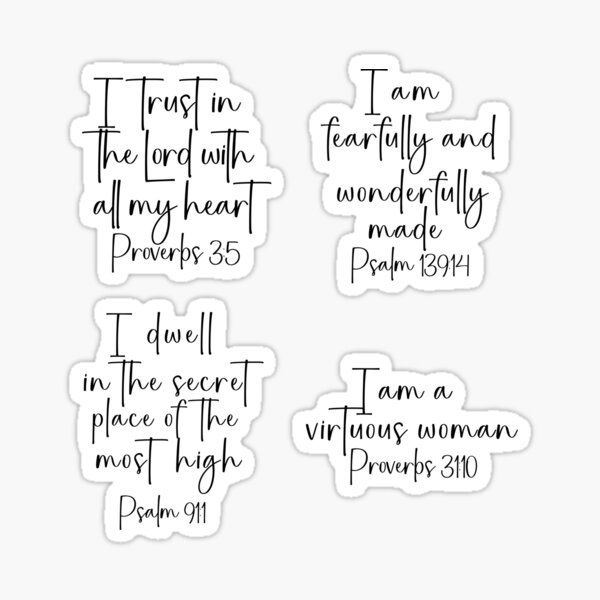 I Trust in
the Lord with
all my heart
Proverbs 3:5
I am
fearfully and
wonderfully
made
Psalm 139:14
I dwell
in the secret
place of the
most high
Psalm 91:1
I am a
virtuous woman
Proverbs 31:10